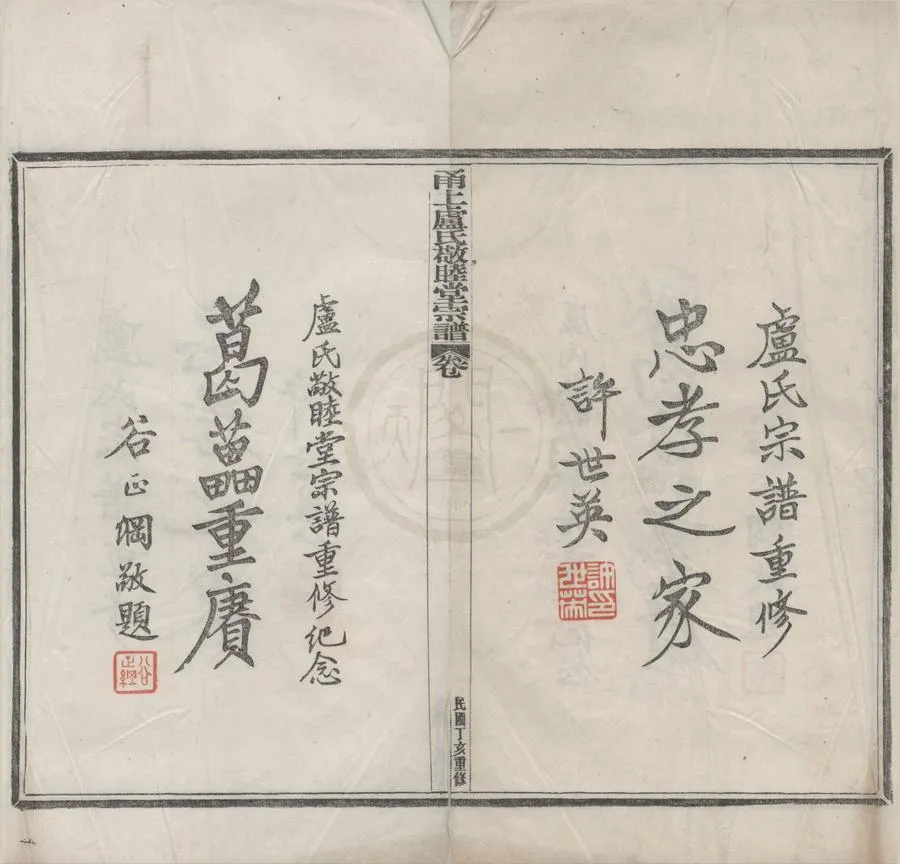 盧氏宗譜重修
忠孝之家
許世英
許印世英
甬上盧氏敬睦堂宗譜
卷
民國丁亥重修
盧氏敬睦堂宗譜重修紀念
葛藟重賡
谷正綱敬題
谷正綱